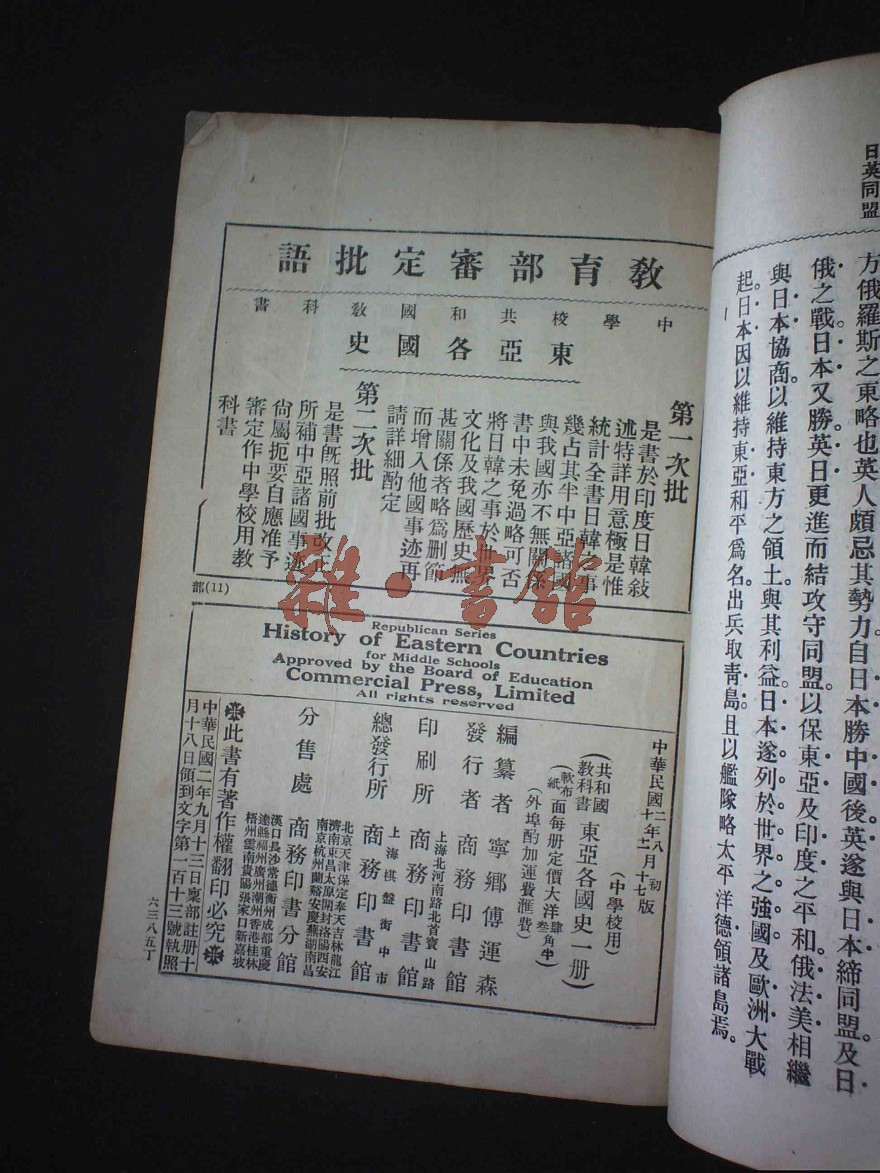 日英同盟
方俄羅斯之東略也英人頗忌其勢力自日本勝中國後英遂與日本締同盟。及日
俄之戰日本又勝英日更進而結攻守同盟。以保東亞及印度之平和俄法美相繼
與日本協商。以維持東方之領土與其利益日本遂列於世界之強國及歐洲大戰
起。日本因以維持東亞和平爲名。出兵取青島。且以艦隊略太平洋德領諸島焉。
教育部審定批語
中學校共和國教科書
東亞各國史
第一次批
是書於印度日韓敍
述特詳用意極是惟
統計全書日韓之事
幾占其半中亞諸國
與我國亦不無關係
書中未免過略可否
將日韓之事於世界
文化及我國歷史無
甚關係者略爲刪節
而增入他國事迹再
請詳細酌定
第二次批
是書既照前批改正
所補中亞諸國事迹
尙屬扼要自應准予
審定作中學校用教
科書
部(11)
Republican Series
History of Eastern Countries
for Middle Schools
Approved by the Board of Education
Commercial Press, Limited
All rights reserved
中華民國
二年八月初版
月十七版
(中學校用)
(共和國教科書)東亞各國史一册
(軟布面每册定價大洋
紙
(外埠酌加運費滙費)
編纂者 寧鄉傅運森
發行者 商務印書館
上海北河南路北首寶山路
印刷所 商務印書館
上海棋盤街中市
總發行所 商務印書館
北京天津保定奉天吉林龍江
濟南東昌太原開封洛陽西安
南京杭州蘭谿安慶蕪湖南昌
分售處 商務印書分館
漢口長沙常德衡州成都重慶
達縣福州廣州潮州香港桂林
梧州雲南貴陽張家口新嘉坡
此書有著作權翻印必究
中華民國二年九月十三日稟部註册十
月十八日領到文字第一百十三號執照
六三八五丁
雜·書館